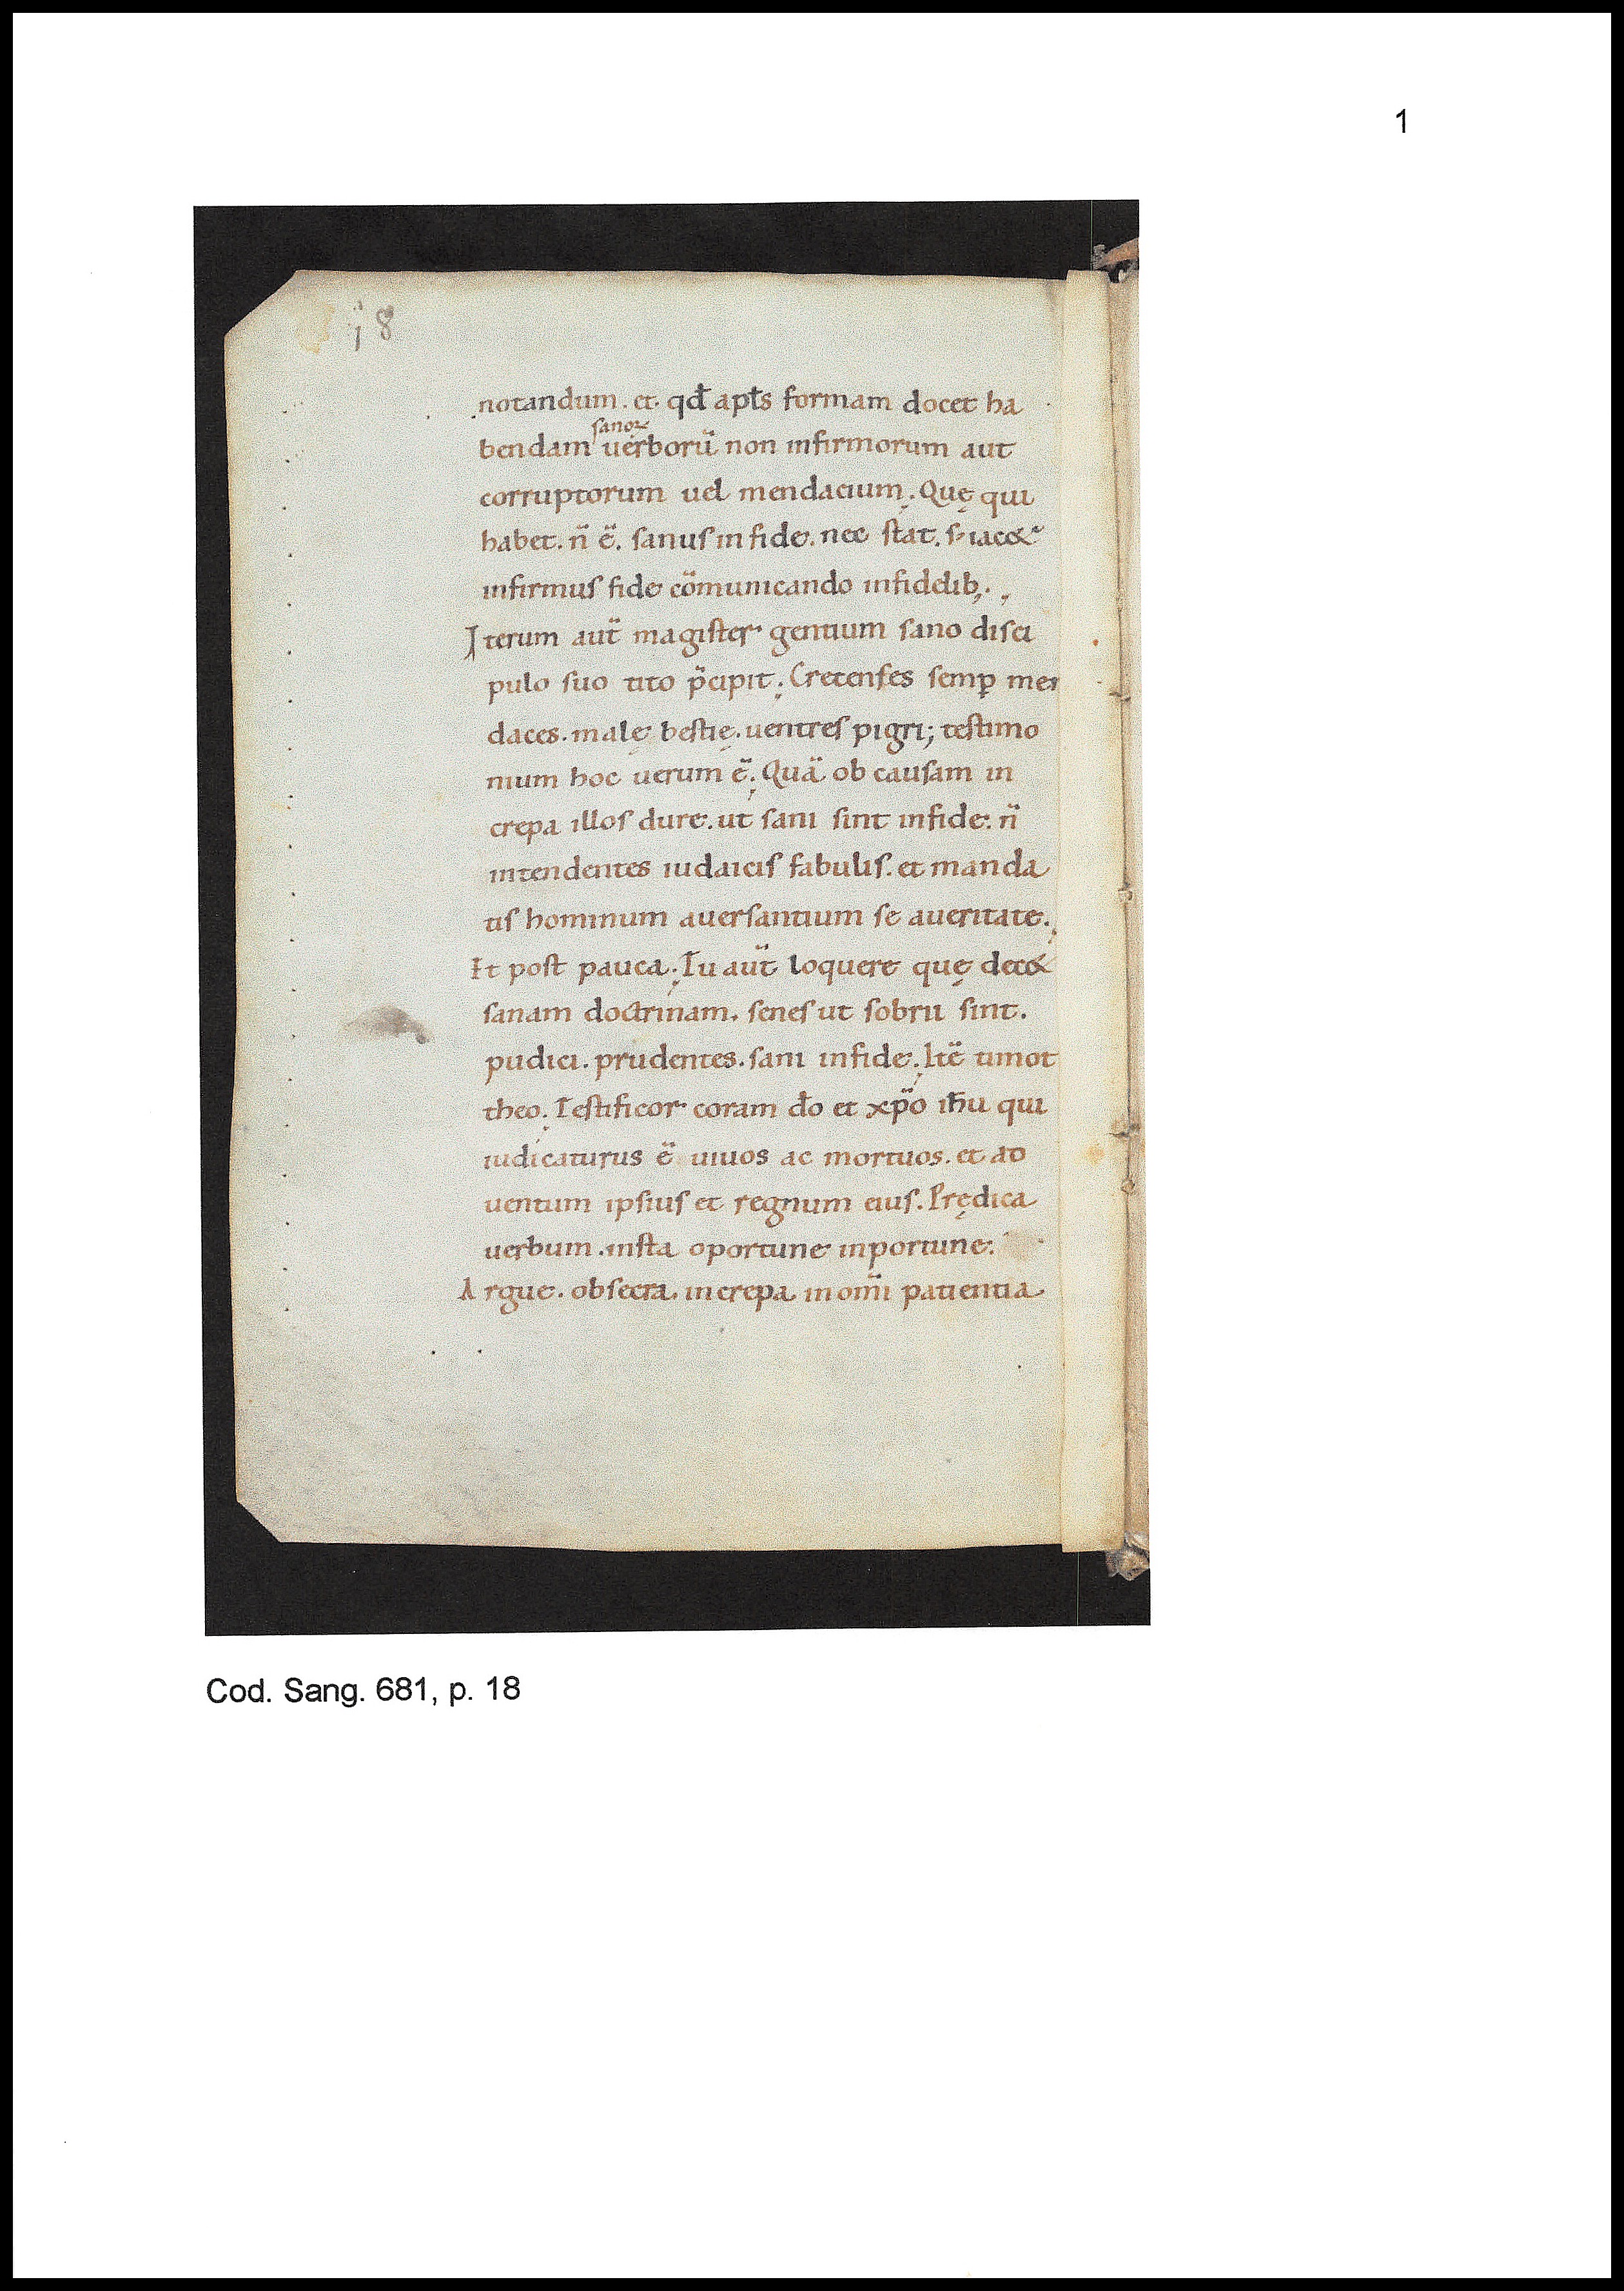 1
18
notandum. et. qđ apłs formam docet ha
sanoꝝ
bendam uerborū non infirmorum aut
corruptorum uel mendacium. Quę qui
habet. n̄ ē. sanus in fide. nec stat. s; iac&
infirmus fide cōmunicando infidelib;.
Iterum aut̄ magister gentium sano disci
pulo suo tito p̄cipit; Cretenses semꝑ men
daces. malę bestię. uentres pigri; testimo
nium hoc uerum ē. Quā ob causam in
crepa illos dure. ut sani sint infide. n̄
intendentes iudaicis fabulis. et manda
tis hominum auersantium se aueritate.
Et post pauca. Tu aut̄ loquere quę dec&
sanam doctrinam. senes ut sobrii sint.
pudici. prudentes. sani infide. Itē timot
theo. Testificor coram đo et xp̄o ihu qui
iudicaturus ē uiuos ac mortuos. et ad
uentum ipsius et regnum eius. Prędica
uerbum. insta oportune inportune.
Argue. obsecra. increpa in om̄i patientia
Cod. Sang. 681, p. 18